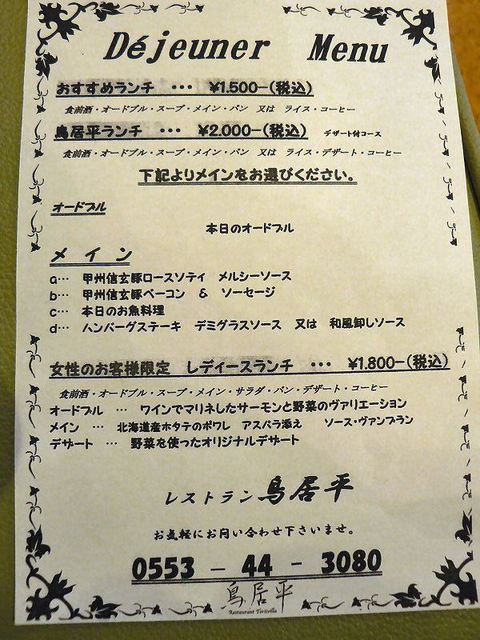 Déjeuner Menu
おすすめランチ ・・・ ¥1.500-(税込)
食前酒・オードブル・スープ・メイン・パン 又は ライス・コーヒー
鳥居平ランチ ・・・ ¥2.000-(税込) デザート付コース
食前酒・オードブル・スープ・メイン・パン 又は ライス・デザート・コーヒー
下記よりメインをお選びください。
オードブル
本日のオードブル
メイン
a… 甲州信玄豚ロースソテイ メルシーソース
b… 甲州信玄豚ベーコン & ソーセージ
c… 本日のお魚料理
d… ハンバーグステーキ デミグラスソース 又は 和風卸しソース
女性のお客様限定 レディースランチ ・・・ ¥1.800-(税込)
食前酒・オードブル・スープ・メイン・サラダ・パン・デザート・コーヒー
オードブル … ワインでマリネしたサーモンと野菜のヴァリエーション
メイン … 北海道産ホタテのポワレ アスパラ添え ソース・ヴァンブラン
デザート … 野菜を使ったオリジナルデザート
レストラン鳥居平
お気軽にお問い合わせ下さいませ。
0553 - 44 - 3080
鳥居平
Restaurant Toriivilla